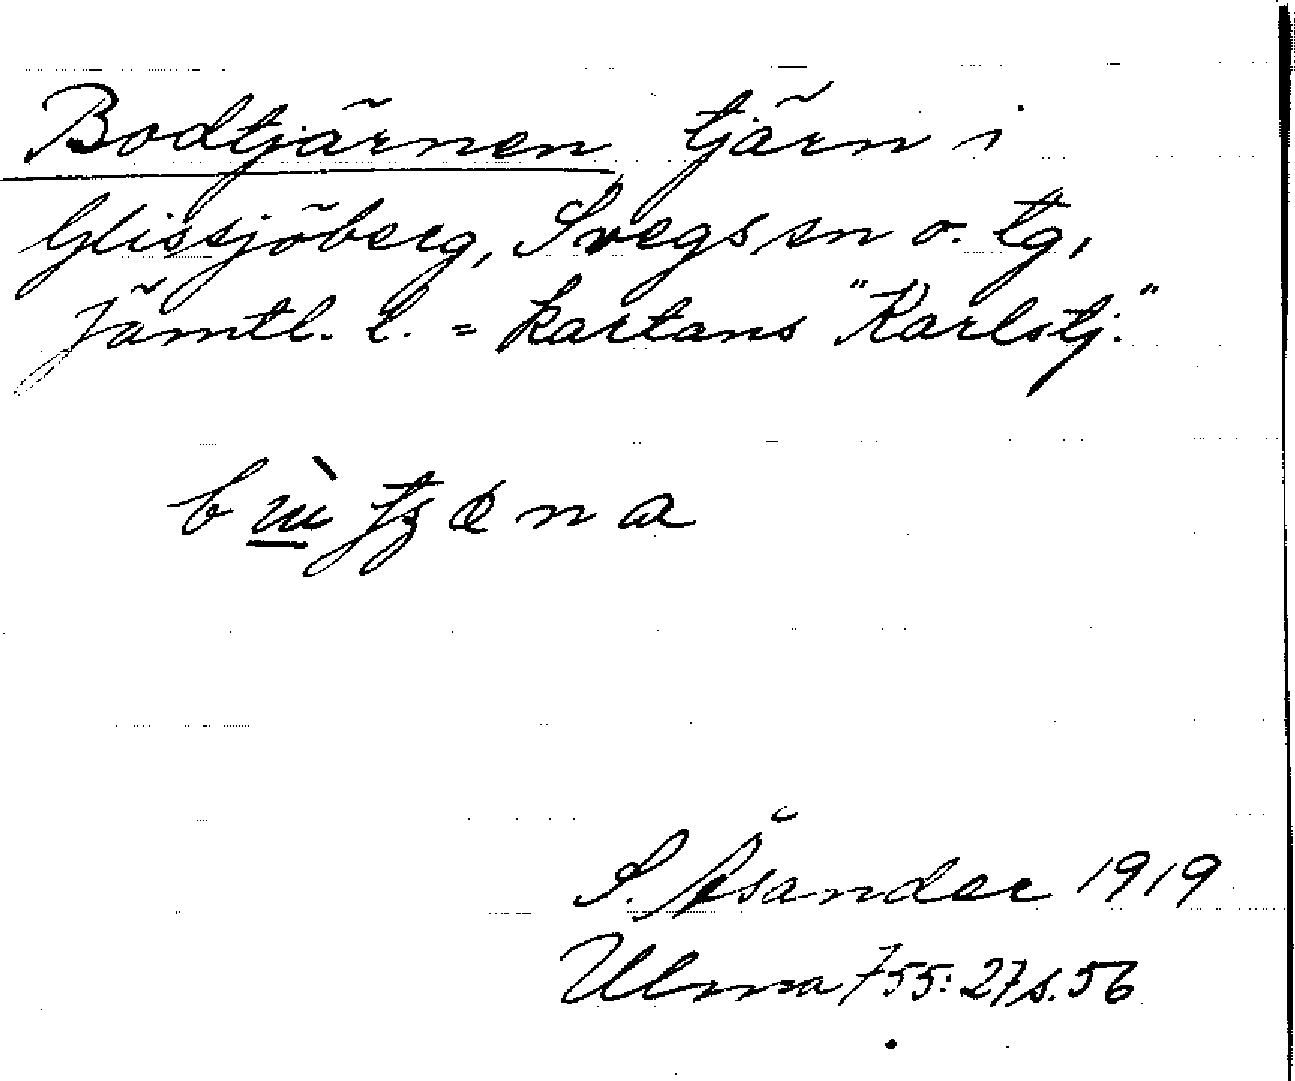 Bodtjärnen tjärn i
Glissjöberg, Svegs sn o. tg,
Jämtl. l. = kartans "Karlstj."
S. Åsander 1919
Ulma 755:27 s. 56